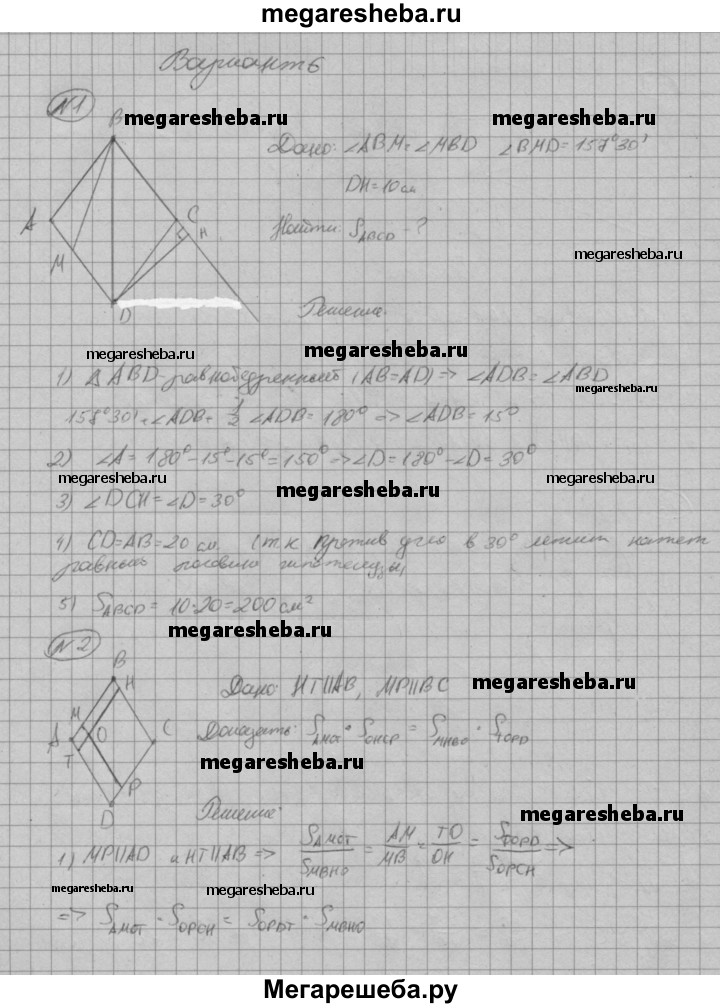 megaresheba.ru
Вариант 6
№1
B megaresheba.ru megaresheba.ru
Дано: ∠ABM = ∠MBD ∠BMD = 157°30'
DH = 10 см
A C H
Найти: S_ABCD - ?
M megaresheba.ru
D
Решение:
megaresheba.ru megaresheba.ru
1) Δ ABD - равнобедренный (AB = AD) => ∠ADB = ∠ABD
megaresheba.ru
158°30' + ∠ADB + 1/2 ∠ADB = 180° => ∠ADB = 15°
2) ∠A = 180° - 15° - 15° = 150° => ∠D = 180° - ∠D = 30°
megaresheba.ru megaresheba.ru megaresheba.ru
3) ∠DCH = ∠D = 30°
4) CD = AB = 20 см (т.к против угла в 30° лежит катет
равный половине гипотенузы
5) S_ABCD = 10·20 = 200 см²
megaresheba.ru
№2
B H
Дано: HT || AB, MP || BC megaresheba.ru
A M O C
T
Доказать: S_AMOT · S_OHCP = S_MHBO · S_TOPD
megaresheba.ru
P
D
Решение:
megaresheba.ru
1) MP || AD и HT || AB => S_AMOT / S_MBHO = AM / MB = TO / OH = S_TOPD / S_OPCH =>
megaresheba.ru megaresheba.ru
=> S_AMOT · S_OPCH = S_OPDT · S_MBHO
Мегарешеба.ру